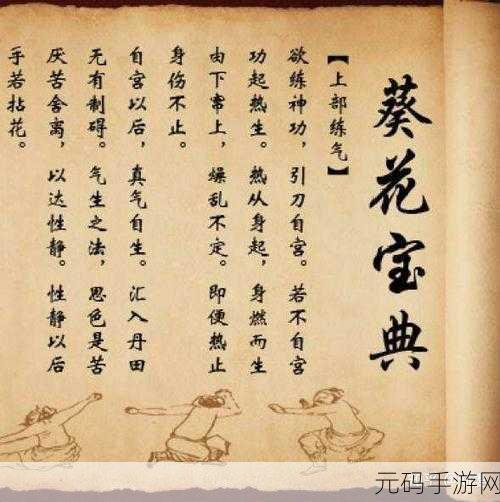 葵花宝典
【上部练气】
欲练神功，引刀自宫。若不自宫
功起热生。热从身起，身燃而生
由下窜上，燥乱不定。即便热止
身伤不止。
自宫以后，真气自生。汇入丹田
无有制碍。气生之法，思色是苦
厌苦舍离，以达性静。性静以后
手若拈花。
元码手游网